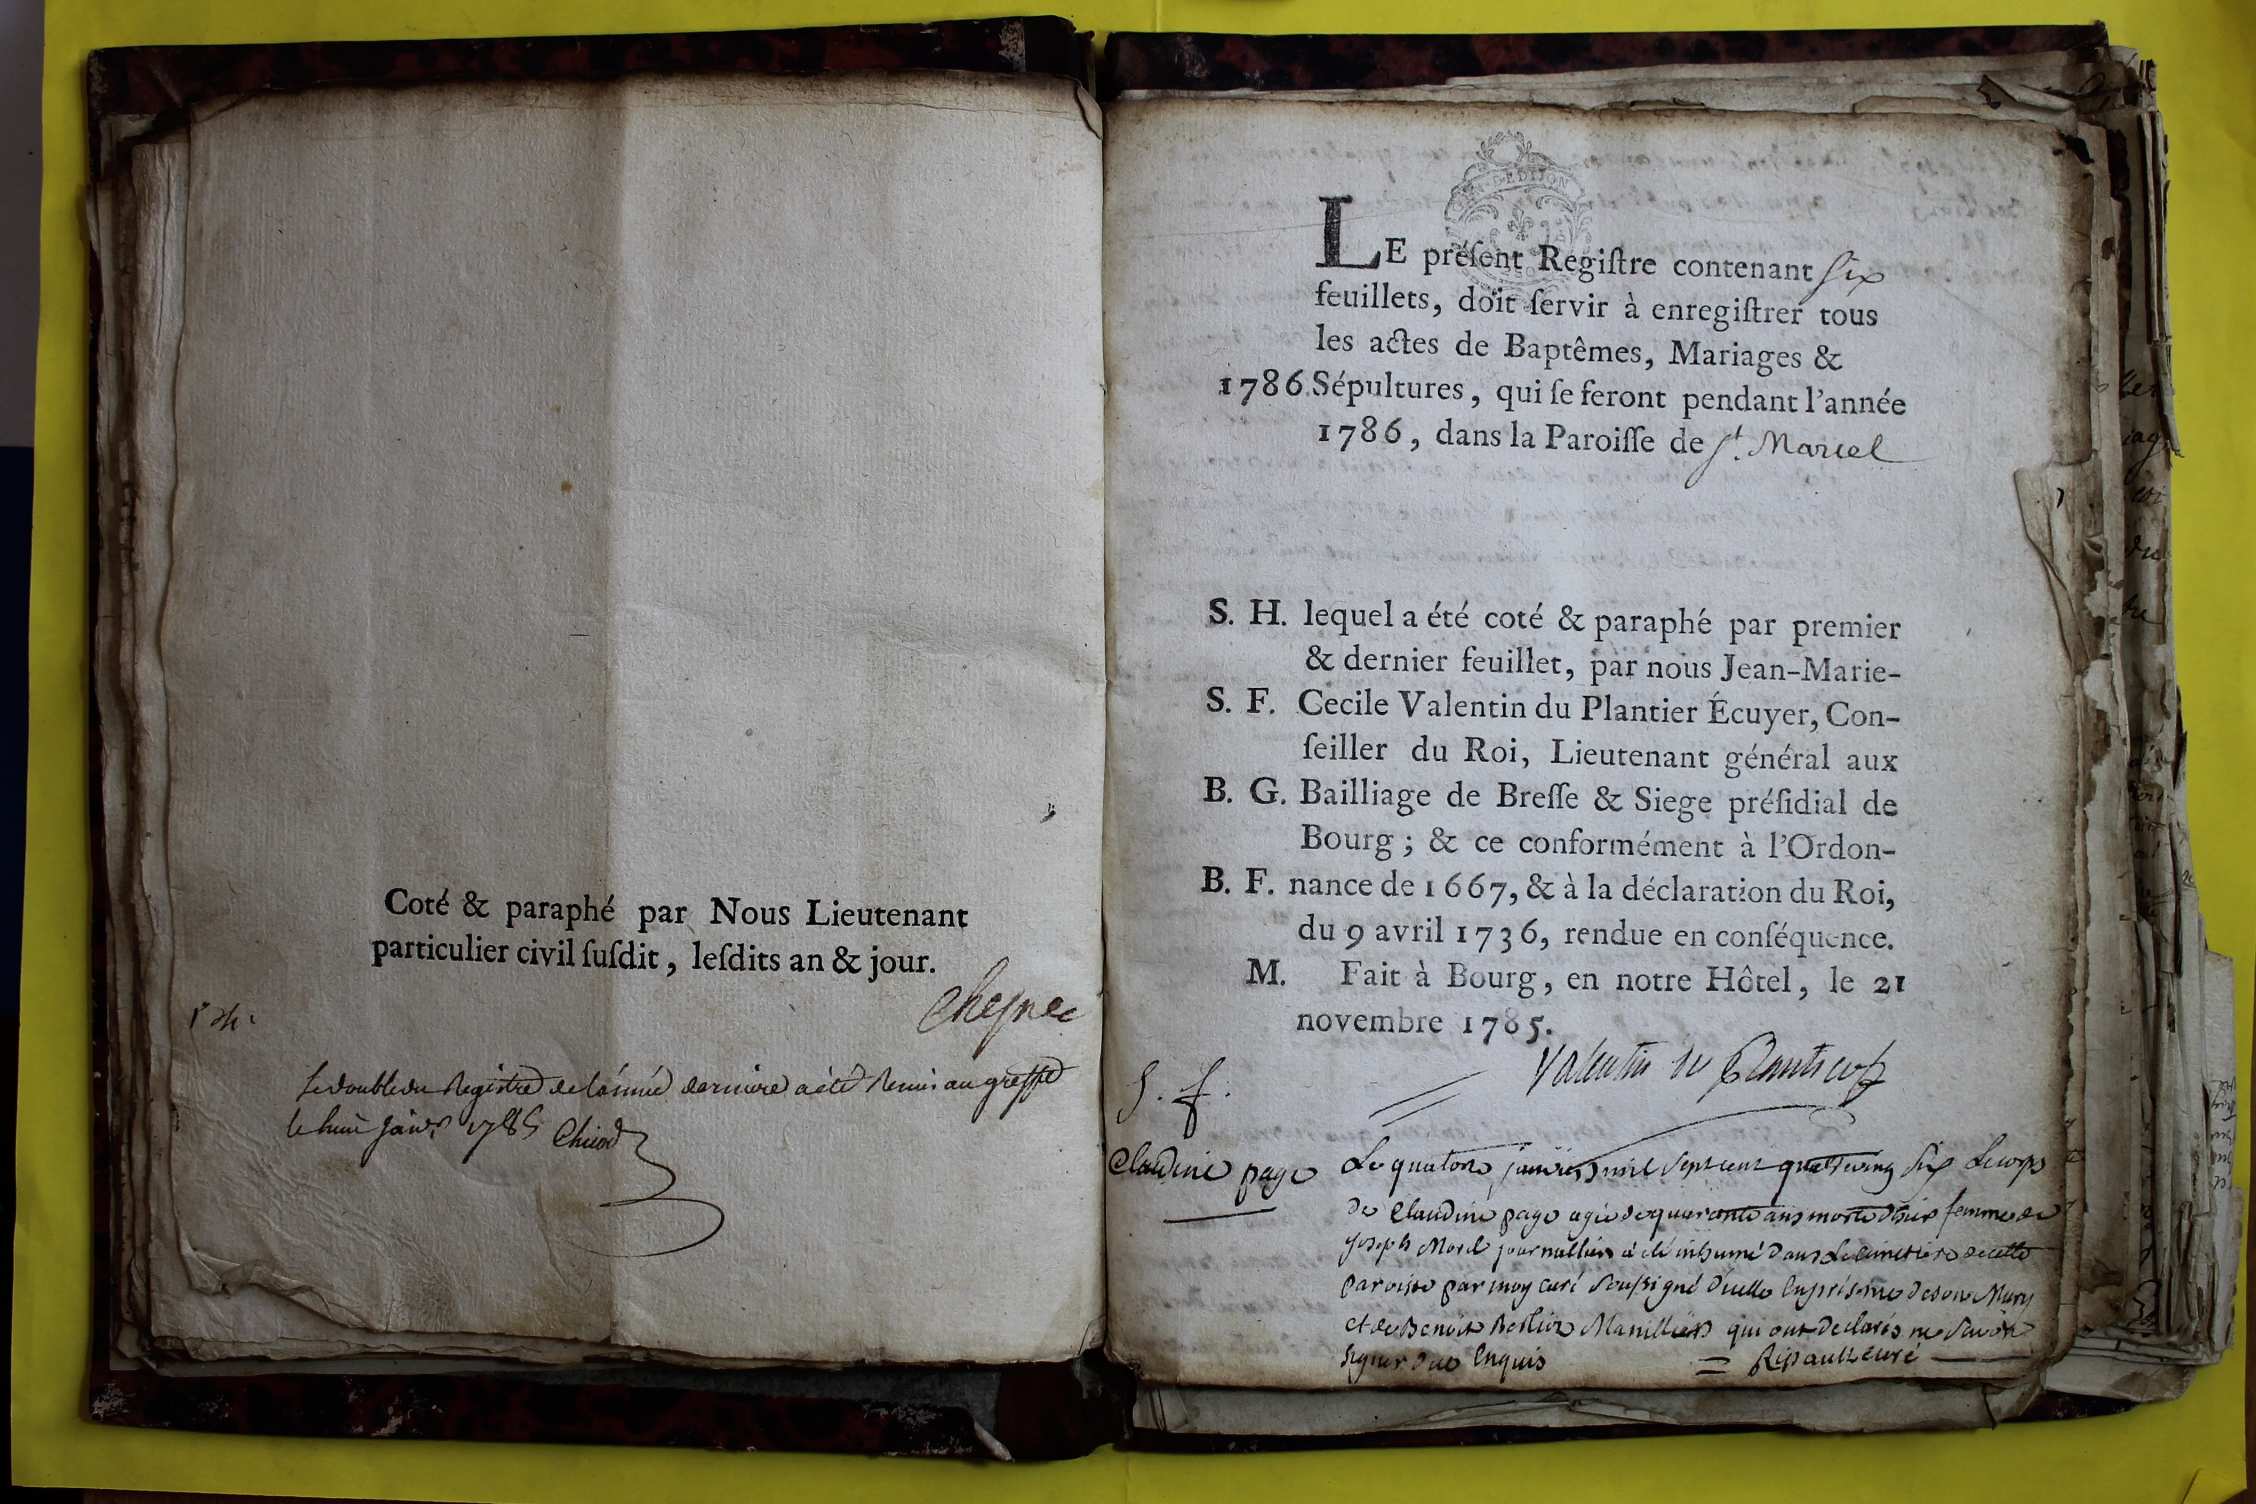 Coté & paraphé par Nous Lieutenant
particulier civil ſuſdit, leſdits an & jour.
Le double du Registre de l'année derniere a été Remis au greffe
le huit janvr 1785
GEN. DE DIJON
LE préſent Regiſtre contenant Six
feuillets, doit ſervir à enregiſtrer tous
les actes de Baptêmes, Mariages &
1786. Sépultures, qui ſe feront pendant l'année
1786, dans la Paroiſſe de St. Marcel
S. H. lequel a été coté & paraphé par premier
& dernier feuillet, par nous Jean-Marie-
S. F. Cecile Valentin du Plantier Écuyer, Con-
ſeiller du Roi, Lieutenant général aux
B. G. Bailliage de Breſſe & Siege préſidial de
Bourg ; & ce conformément à l'Ordon-
B. F. nance de 1667, & à la déclaration du Roi,
du 9 avril 1736, rendue en conſéquence.
M. Fait à Bourg, en notre Hôtel, le 21
novembre 1785.
Valentin du Plantier
S. f.
Claudine page
Le quatorze janvier mil sept cent quatre vingt Six Le corps
de Claudine page agée de quarante ans morte d'hier femme de
joseph Morel journallier a été inhumé dans Le cimetiere de cette
paroisse par moy curé soussigné d'icelle En présence de son Mary
et de Benoit Manillier qui ont declarés ne savoir
signer de ce Enquis
= Ripault curé